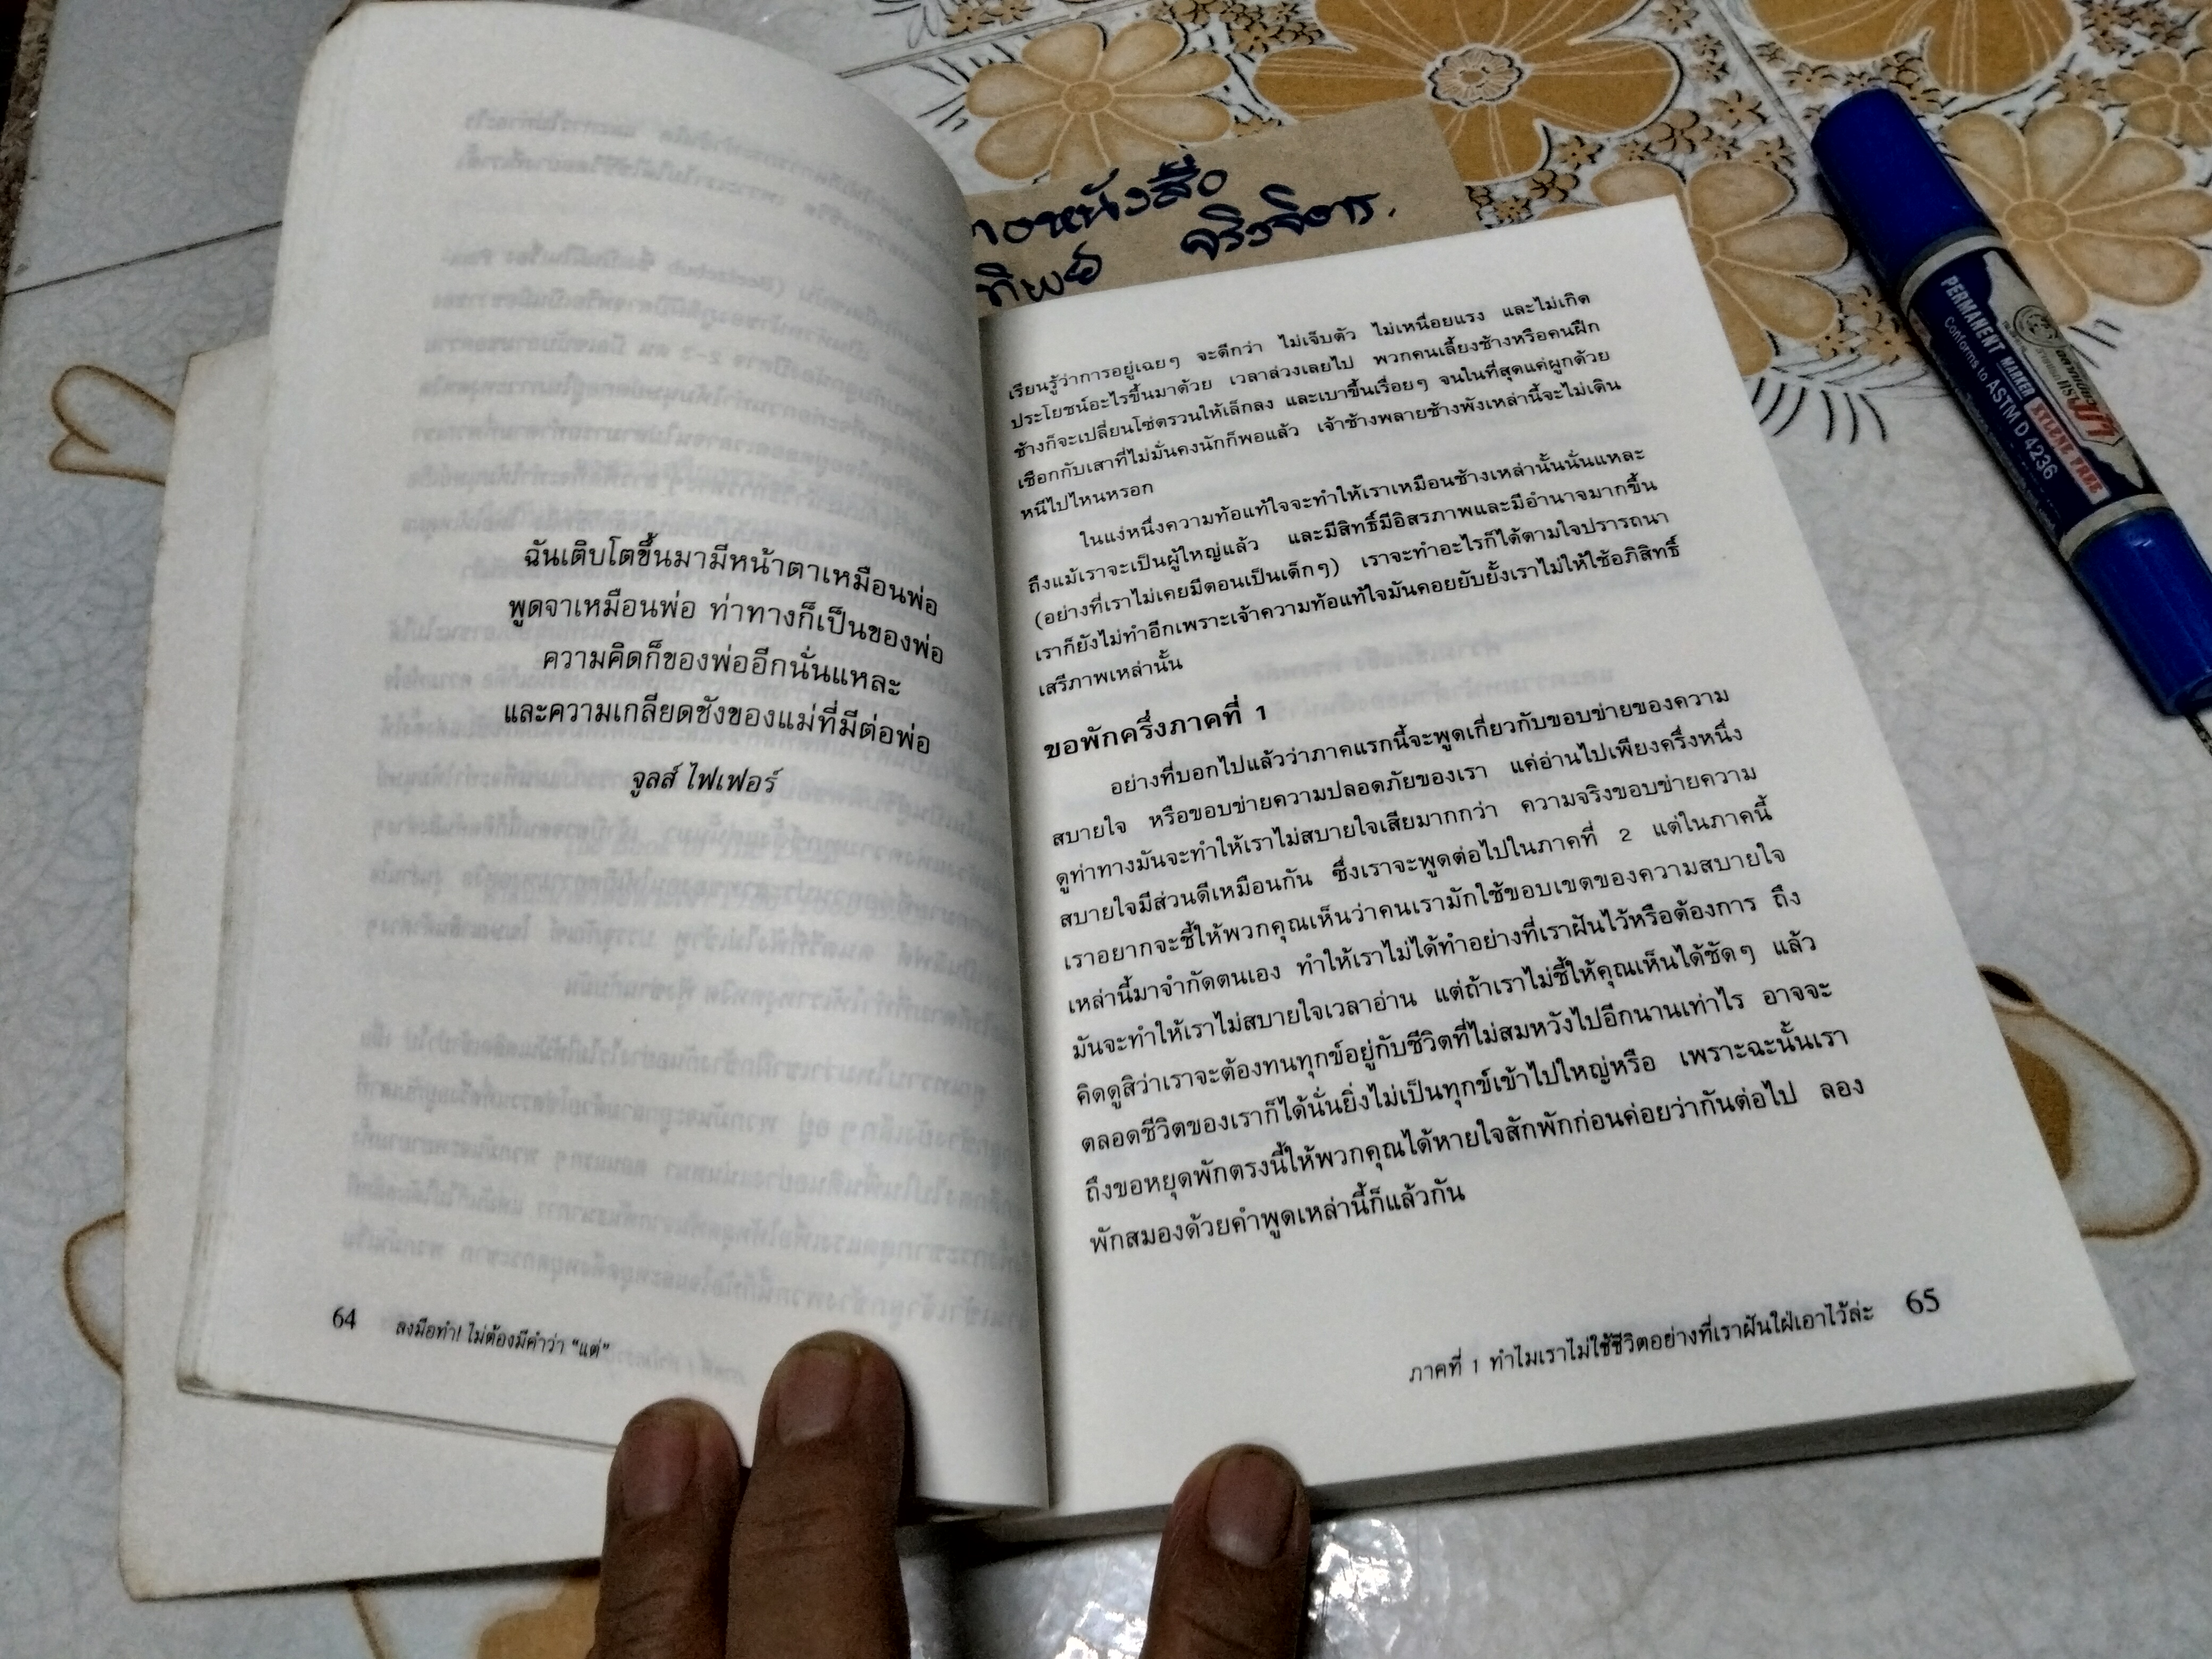 ฉันเติบโตขึ้นมามีหน้าตาเหมือนพ่อ
พูดจาเหมือนพ่อ ท่าทางก็เป็นของพ่อ
ความคิดก็ของพ่ออีกนั่นแหละ
และความเกลียดชังของแม่ที่มีต่อพ่อ
จูลส์ ไฟเฟอร์
64 ลงมือทำ! ไม่ต้องมีคำว่า "แต่"
หนังสือ
จริงจิตร.
เรียนรู้ว่าการอยู่เฉยๆ จะดีกว่า ไม่เจ็บตัว ไม่เหนื่อยแรง และไม่เกิด
ประโยชน์อะไรขึ้นมาด้วย เวลาล่วงเลยไป พวกคนเลี้ยงช้างหรือคนฝึก
ช้างก็จะเปลี่ยนโซ่ตรวนให้เล็กลง และเบาขึ้นเรื่อยๆ จนในที่สุดแค่ผูกด้วย
เชือกกับเสาที่ไม่มั่นคงนักก็พอแล้ว เจ้าช้างพลายช้างพังเหล่านี้จะไม่เดิน
หนีไปไหนหรอก
ในแง่หนึ่งความท้อแท้ใจจะทำให้เราเหมือนช้างเหล่านั้นนั่นแหละ
ถึงแม้เราจะเป็นผู้ใหญ่แล้ว และมีสิทธิ์มีอิสรภาพและมีอำนาจมากขึ้น
(อย่างที่เราไม่เคยมีตอนเป็นเด็กๆ) เราจะทำอะไรก็ได้ตามใจปรารถนา
เราก็ยังไม่ทำอีกเพราะเจ้าความท้อแท้ใจมันคอยยับยั้งเราไม่ให้ใช้อภิสิทธิ์
เสรีภาพเหล่านั้น
ขอพักครึ่งภาคที่ 1
อย่างที่บอกไปแล้วว่าภาคแรกนี้จะพูดเกี่ยวกับขอบข่ายของความ
สบายใจ หรือขอบข่ายความปลอดภัยของเรา แค่อ่านไปเพียงครึ่งหนึ่ง
ดูท่าทางมันจะทำให้เราไม่สบายใจเสียมากกว่า ความจริงขอบข่ายความ
สบายใจมีส่วนดีเหมือนกัน ซึ่งเราจะพูดต่อไปในภาคที่ 2 แต่ในภาคนี้
เราอยากจะชี้ให้พวกคุณเห็นว่าคนเรามักใช้ขอบเขตของความสบายใจ
เหล่านี้มาจำกัดตนเอง ทำให้เราไม่ได้ทำอย่างที่เราฝันไว้หรือต้องการ ถึง
มันจะทำให้เราไม่สบายใจเวลาอ่าน แต่ถ้าเราไม่ชี้ให้คุณเห็นได้ชัดๆ แล้ว
คิดดูสิว่าเราจะต้องทนทุกข์อยู่กับชีวิตที่ไม่สมหวังไปอีกนานเท่าไร อาจจะ
ตลอดชีวิตของเราก็ได้นั่นยิ่งไม่เป็นทุกข์เข้าไปใหญ่หรือ เพราะฉะนั้นเรา
ถึงขอหยุดพักตรงนี้ให้พวกคุณได้หายใจสักพักก่อนค่อยว่ากันต่อไป ลอง
พักสมองด้วยคำพูดเหล่านี้ก็แล้วกัน
ภาคที่ 1 ทำไมเราไม่ใช้ชีวิตอย่างที่เราฝันใฝ่เอาไว้ล่ะ 65
PERMANENT MARKER XYLENE FREE
Conforms to ASTM D 4236
ตราม้า